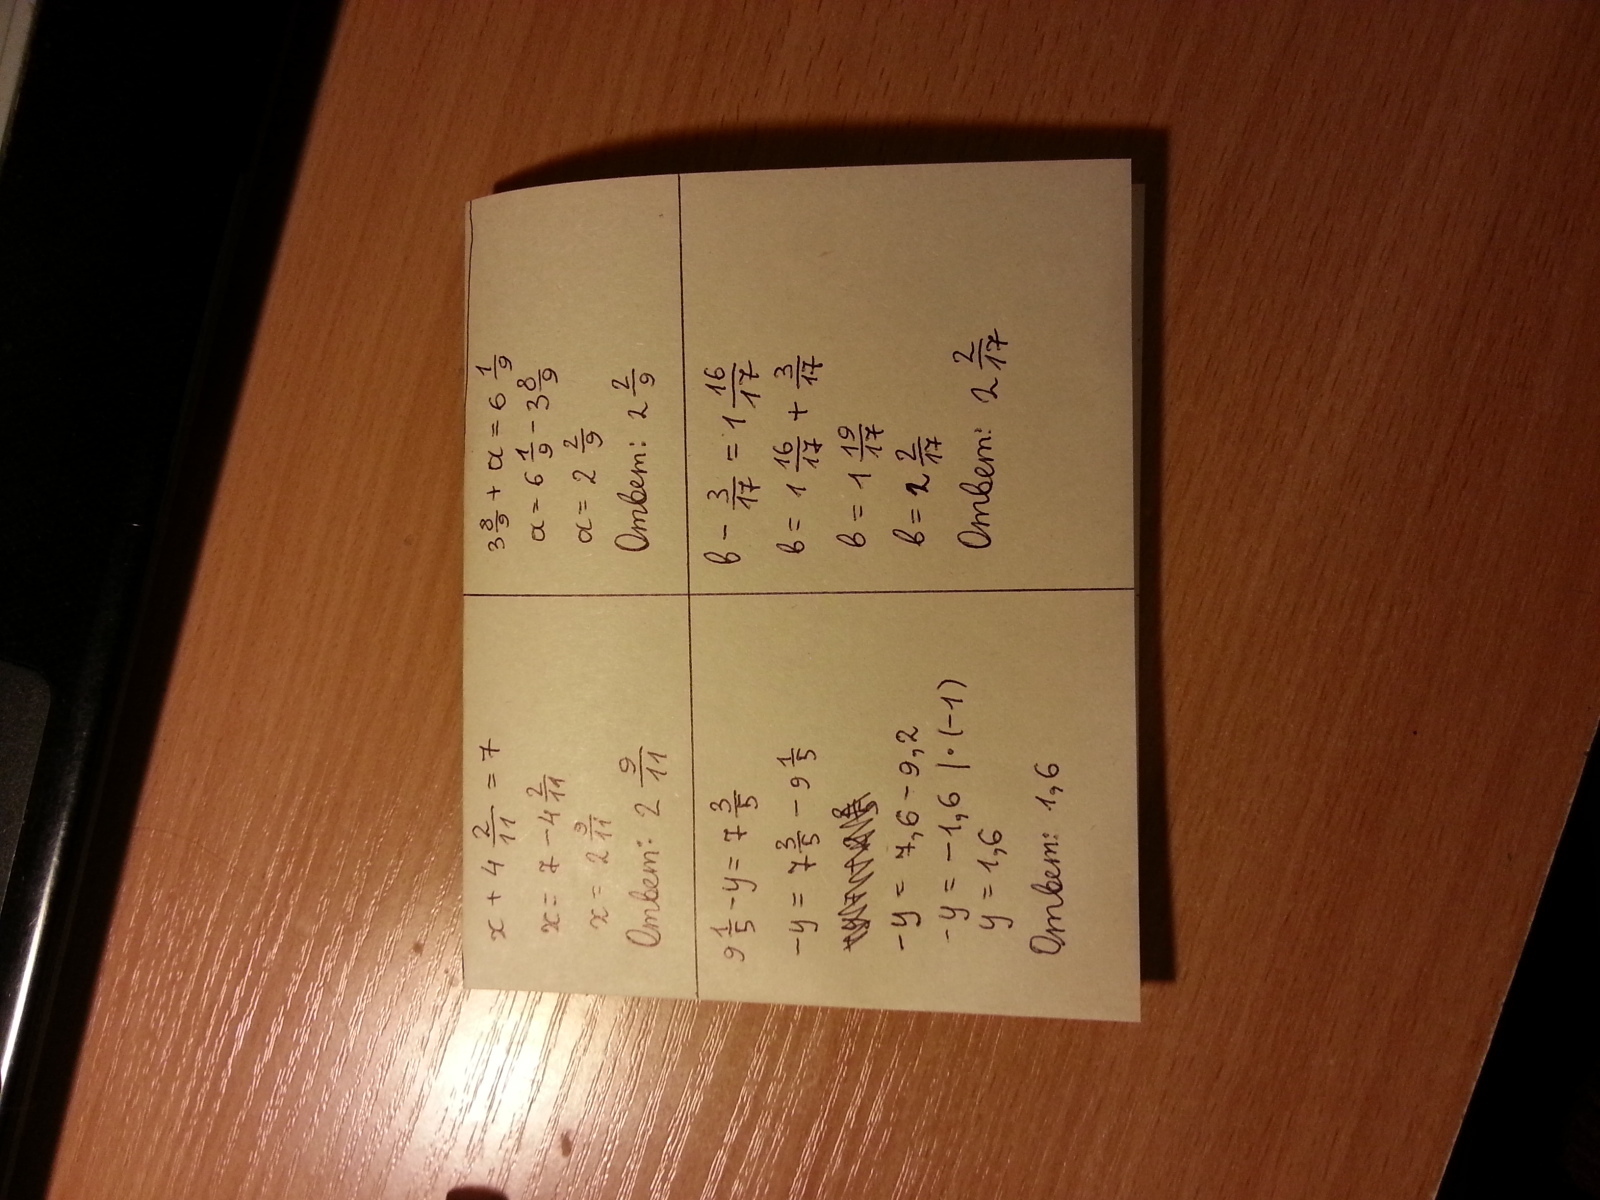 x + 4 2/11 = 7
x = 7 - 4 2/11
x = 2 9/11
Ответ: 2 9/11
3 8/9 + a = 6 1/9
a = 6 1/9 - 3 8/9
a = 2 2/9
Ответ: 2 2/9
9 1/5 - y = 7 3/5
-y = 7 3/5 - 9 1/5
-y = 7,6 - 9,2
-y = -1,6 | · (-1)
y = 1,6
Ответ: 1,6
в - 3/17 = 1 16/17
в = 1 16/17 + 3/17
в = 1 19/17
в = 2 2/17
Ответ: 2 2/17